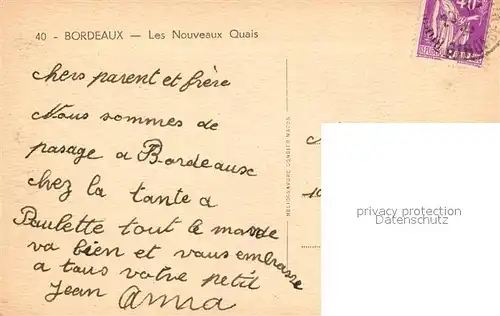 40 - BORDEAUX — Les Nouveaux Quais
chers parent et frère
Nous sommes de
pasage a Bordeaux
chez la tante a
Paulette tout le monde
va bien et vous embrasse
a tous votre petit
Jean
HELIOGRAVURE
40
privacy protection
Datenschutz